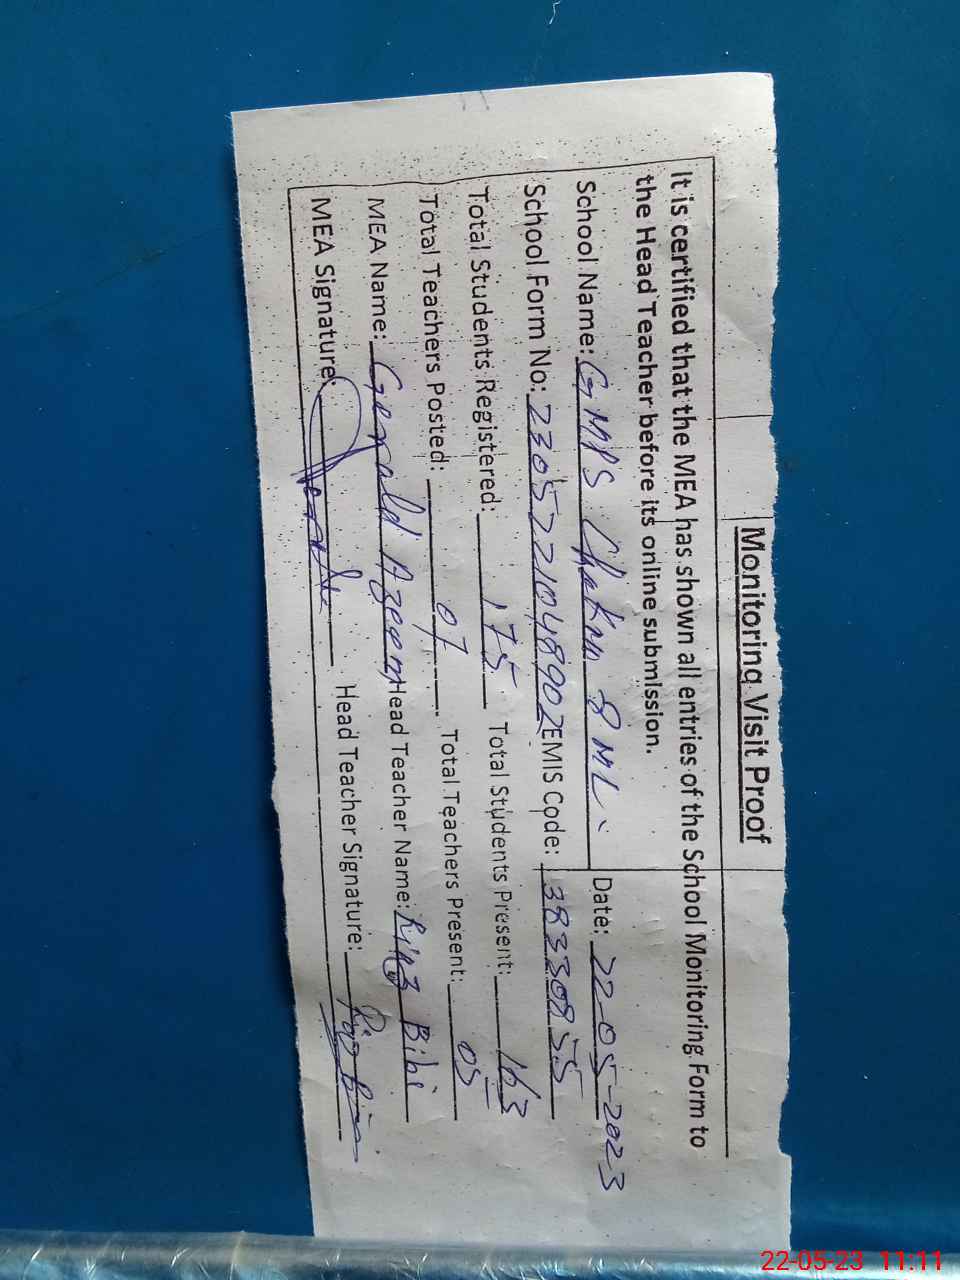 Monitoring Visit Proof
It is certified that the MEA has shown all entries of the School Monitoring Form to
the Head Teacher before its online submission.
School Name: GMPS Chakno 8 ML Date: 22-05-2023
School Form No: 2305221048902 EMIS Code: 38330855
Total Students Registered: 175 Total Students Present: 163
Total Teachers Posted: 07 Total Teachers Present: 05
MEA Name: Gerald Azeem Head Teacher Name: Bibi
MEA Signature: Head Teacher Signature:
22-05-23 11:11